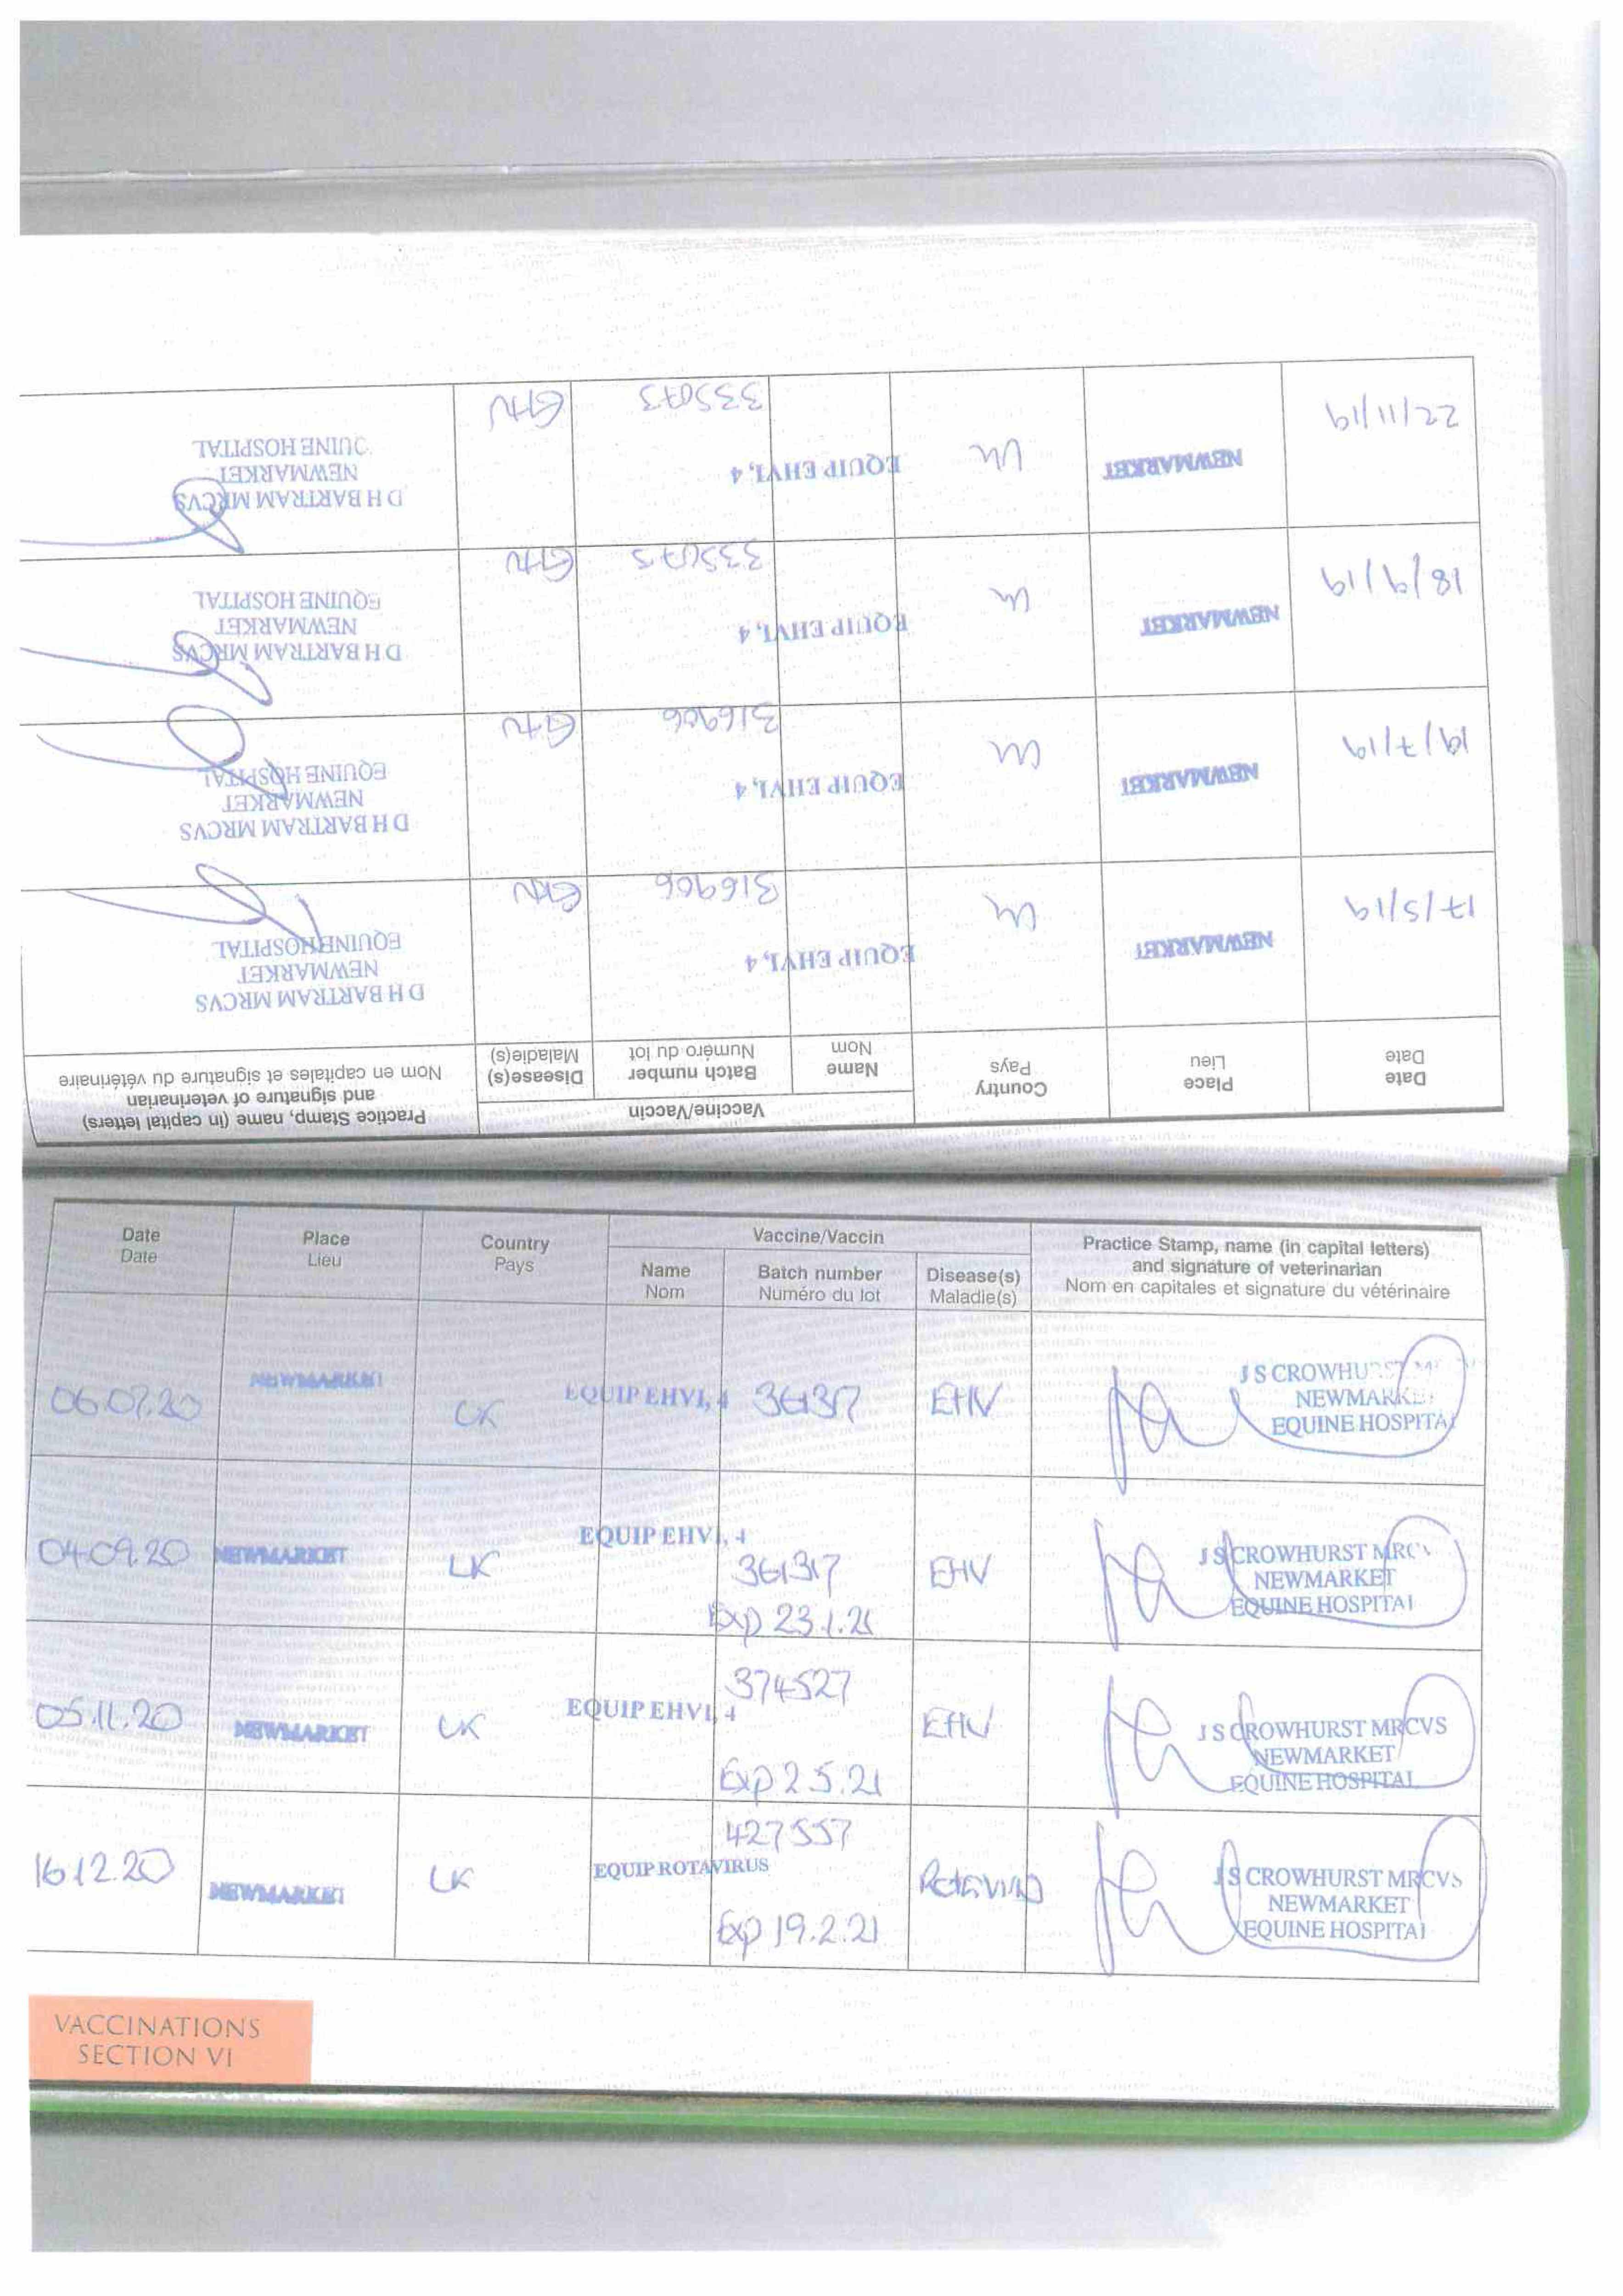 Date Place Country Vaccine/Vaccin Practice Stamp, name (in capital letters)
Date Lieu Pays Name Batch number Disease(s) and signature of veterinarian
Nom Numéro du lot Maladie(s) Nom en capitales et signature du vétérinaire
17/5/19 NEWMARKET UK EQUIP EHV1,4 316906 EHV D H BARTRAM MRCVS
NEWMARKET
EQUINE HOSPITAL
19/7/19 NEWMARKET UK EQUIP EHV1,4 316906 EHV D H BARTRAM MRCVS
NEWMARKET
EQUINE HOSPITAL
18/9/19 NEWMARKET UK EQUIP EHV1,4 335073 EHV D H BARTRAM MRCVS
NEWMARKET
EQUINE HOSPITAL
22/11/19 NEWMARKET UK EQUIP EHV1,4 335073 EHV D H BARTRAM MRCVS
NEWMARKET
QUINE HOSPITAL
Date Place Country Vaccine/Vaccin Practice Stamp, name (in capital letters)
Date Lieu Pays Name Batch number Disease(s) and signature of veterinarian
Nom Numéro du lot Maladie(s) Nom en capitales et signature du vétérinaire
06.07.20 NEWMARKET UK EQUIP EHV1,4 361317 EHV J S CROWHURST
NEWMARKET
EQUINE HOSPITA
04.09.20 NEWMARKET UK EQUIP EHV1,4 361317 EHV J S CROWHURST MRCV
NEWMARKET
Exp 23.1.21 EQUINE HOSPITAL
05.11.20 NEWMARKET UK EQUIP EHV1,4 374527 EHV J S CROWHURST MRCVS
NEWMARKET
Exp 2.5.21 EQUINE HOSPITAL
16.12.20 NEWMARKET UK EQUIP ROTAVIRUS 427557 Rotavirus J S CROWHURST MRCVS
NEWMARKET
Exp 19.2.21 EQUINE HOSPITAL
VACCINATIONS
SECTION VI